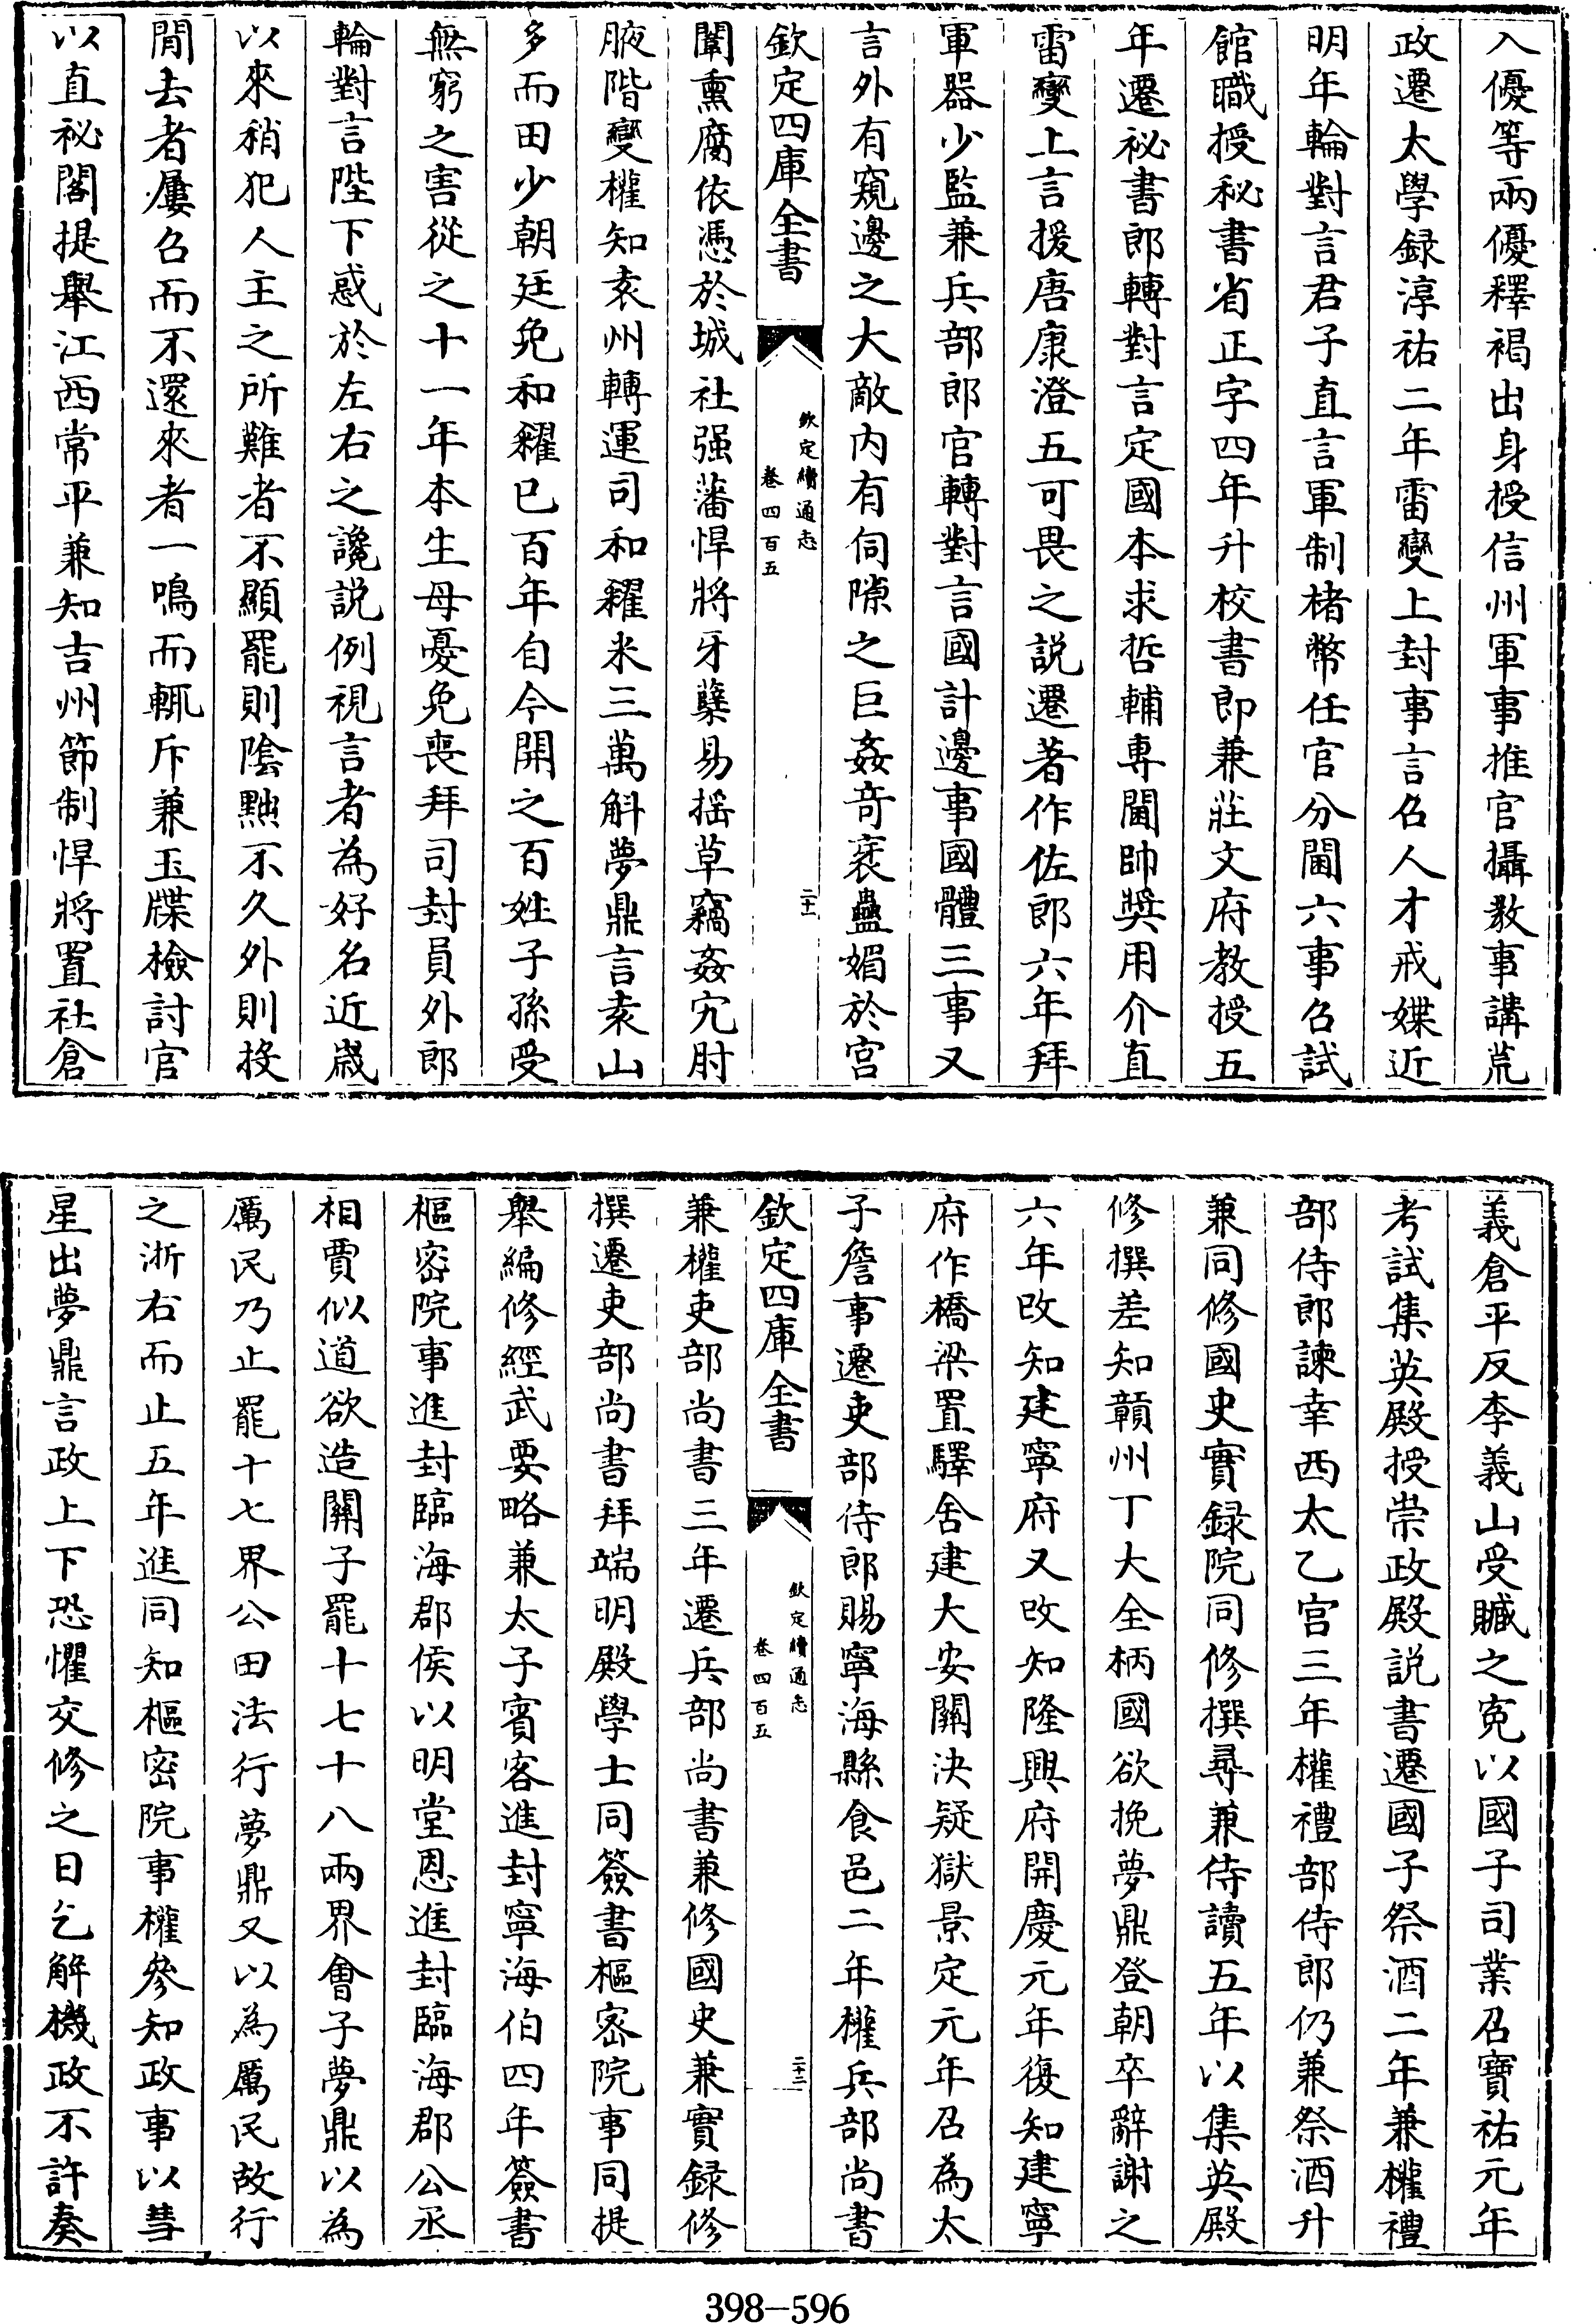 入優等兩優釋褐出身授信州軍事推官攝教事講荒
政遷太學録淳祐二年雷變上封事言召人才戒媟近
明年輪對言君子直言軍制楮幣任官分閫六事召試
館職授秘書省正字四年升校書郎兼莊文府教授五
年遷祕書郎轉對言定國本求哲輔專閫帥奬用介直
雷變上言援唐康澄五可畏之説遷著作佐郎六年拜
軍器少監兼兵部郎官轉對言國計邊事國體三事又
言外有窺邊之大敵内有伺隙之巨姦奇衺蠱媚於宫
欽定四庫全書
欽定續通志
卷四百五
二十一
闈熏腐依憑於城社强藩悍將牙蘖易揺草竊姦宄肘
腋階變權知袁州轉運司和糴米三萬斛夢鼎言袁山
多而田少朝廷免和糴已百年自今開之百姓子孫受
無窮之害從之十一年本生母憂免喪拜司封員外郎
輪對言陛下惑於左右之讒説例視言者為好名近嵗
以來稍犯人主之所難者不顯罷則陰黜不久外則投
閒去者屢召而不還來者一鳴而輒斥兼玉牒檢討官
以直祕閣提舉江西常平兼知吉州節制悍將置社倉
義倉平反李義山受贓之寃以國子司業召寶祐元年
考試集英殿授崇政殿説書遷國子祭酒二年兼權禮
部侍郎諫幸西太乙宫三年權禮部侍郎仍兼祭酒升
兼同修國史實録院同修撰尋兼侍讀五年以集英殿
修撰差知贛州丁大全柄國欲挽夢鼎登朝卒辭謝之
六年改知建寧府又改知隆興府開慶元年復知建寧
府作橋梁置驛舍建大安關決疑獄景定元年召為太
子詹事遷吏部侍郎賜寧海縣食邑二年權兵部尚書
欽定四庫全書
欽定續通志
卷四百五
二十二
兼權吏部尚書三年遷兵部尚書兼修國史兼實録修
撰遷吏部尚書拜端明殿學士同簽書樞密院事同提
舉編修經武要略兼太子賓客進封寧海伯四年簽書
樞密院事進封臨海郡侯以明堂恩進封臨海郡公丞
相賈似道欲造關子罷十七十八兩界會子夢鼎以為
厲民乃止罷十七界公田法行夢鼎又以為厲民故行
之浙右而止五年進同知樞密院事權參知政事以彗
星出夢鼎言政上下恐懼交修之日乞解機政不許奏
398-596